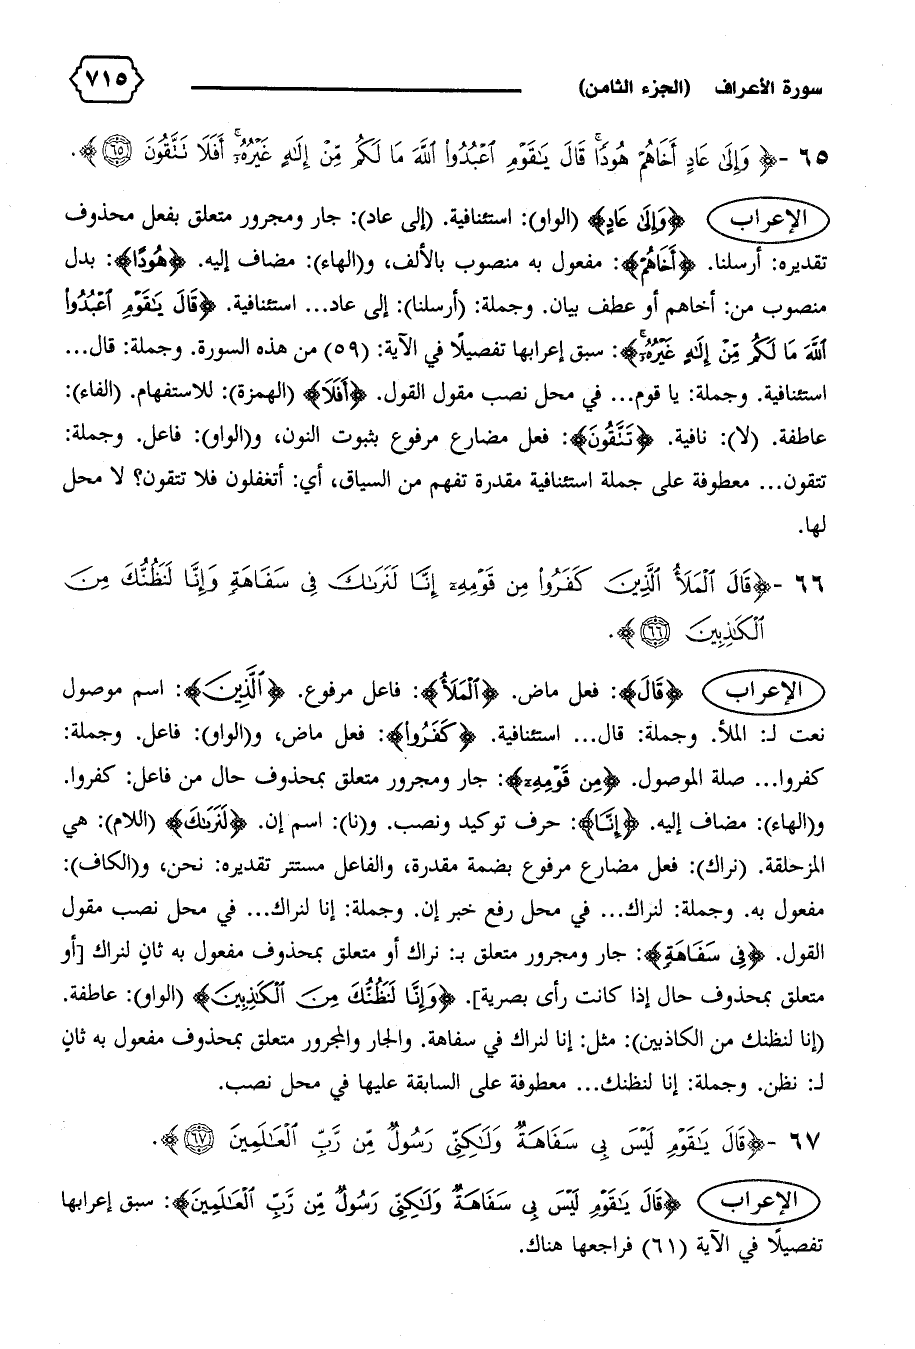 سورة الأعراف (الجزء الثامن) ٧١٥
٦٥ -﴿ وَإِلَىٰ عَادٍ أَخَاهُمْ هُودًا ۗ قَالَ يَـٰقَوْمِ ٱعْبُدُوا۟ ٱللَّهَ مَا لَكُم مِّنْ إِلَـٰهٍ غَيْرُهُۥٓ ۚ أَفَلَا تَتَّقُونَ ٦٥ ﴾.
الإعراب ﴿وَإِلَىٰ عَادٍ﴾ (الواو): استئنافية. (إلى عاد): جار ومجرور متعلق بفعل محذوف
تقديره: أرسلنا. ﴿أَخَاهُمْ﴾: مفعول به منصوب بالألف، و(الهاء): مضاف إليه. ﴿هُودًا﴾: بدل
منصوب من: أخاهم أو عطف بيان. وجملة: (أرسلنا): إلى عاد... استئنافية. ﴿قَالَ يَـٰقَوْمِ ٱعْبُدُوا۟
ٱللَّهَ مَا لَكُم مِّنْ إِلَـٰهٍ غَيْرُهُۥٓ ۚ﴾: سبق إعرابها تفصيلًا في الآية: (٥٩) من هذه السورة. وجملة: قال...
استئنافية. وجملة: يا قوم... في محل نصب مقول القول. ﴿أَفَلَا﴾ (الهمزة): للاستفهام. (الفاء):
عاطفة. (لا): نافية. ﴿تَتَّقُونَ﴾: فعل مضارع مرفوع بثبوت النون، و(الواو): فاعل. وجملة:
تتقون... معطوفة على جملة استئنافية مقدرة تفهم من السياق، أي: أتغفلون فلا تتقون؟ لا محل
لها.
٦٦ -﴿قَالَ ٱلْمَلَأُ ٱلَّذِينَ كَفَرُوا۟ مِن قَوْمِهِۦٓ إِنَّا لَنَرَىٰكَ فِى سَفَاهَةٍ وَإِنَّا لَنَظُنُّكَ مِنَ
ٱلْكَـٰذِبِينَ ٦٦ ﴾.
الإعراب ﴿قَالَ﴾: فعل ماض. ﴿ٱلْمَلَأُ﴾: فاعل مرفوع. ﴿ٱلَّذِينَ﴾: اسم موصول
نعت لـ: الملأ. وجملة: قال... استئنافية. ﴿كَفَرُوا۟﴾: فعل ماض، و(الواو): فاعل. وجملة:
كفروا... صلة الموصول. ﴿مِن قَوْمِهِۦٓ﴾: جار ومجرور متعلق بمحذوف حال من فاعل: كفروا.
و(الهاء): مضاف إليه. ﴿إِنَّا﴾: حرف توكيد ونصب. و(نا): اسم إن. ﴿لَنَرَىٰكَ﴾ (اللام): هي
المزحلقة. (نراك): فعل مضارع مرفوع بضمة مقدرة، والفاعل مستتر تقديره: نحن، و(الكاف):
مفعول به. وجملة: لنراك... في محل رفع خبر إن. وجملة: إنا لنراك... في محل نصب مقول
القول. ﴿فِى سَفَاهَةٍ﴾: جار ومجرور متعلق بـ: نراك أو متعلق بمحذوف مفعول به ثانٍ لنراك [أو
متعلق بمحذوف حال إذا كانت رأى بصرية]. ﴿وَإِنَّا لَنَظُنُّكَ مِنَ ٱلْكَـٰذِبِينَ﴾ (الواو): عاطفة.
(إنا لنظنك من الكاذبين): مثل: إنا لنراك في سفاهة. والجار والمجرور متعلق بمحذوف مفعول به ثانٍ
لـ: نظن. وجملة: إنا لنظنك... معطوفة على السابقة عليها في محل نصب.
٦٧ -﴿قَالَ يَـٰقَوْمِ لَيْسَ بِى سَفَاهَةٌ وَلَـٰكِنِّى رَسُولٌ مِّن رَّبِّ ٱلْعَـٰلَمِينَ ٦٧ ﴾.
الإعراب ﴿قَالَ يَـٰقَوْمِ لَيْسَ بِى سَفَاهَةٌ وَلَـٰكِنِّى رَسُولٌ مِّن رَّبِّ ٱلْعَـٰلَمِينَ﴾: سبق إعرابها
تفصيلًا في الآية (٦١) فراجعها هناك.